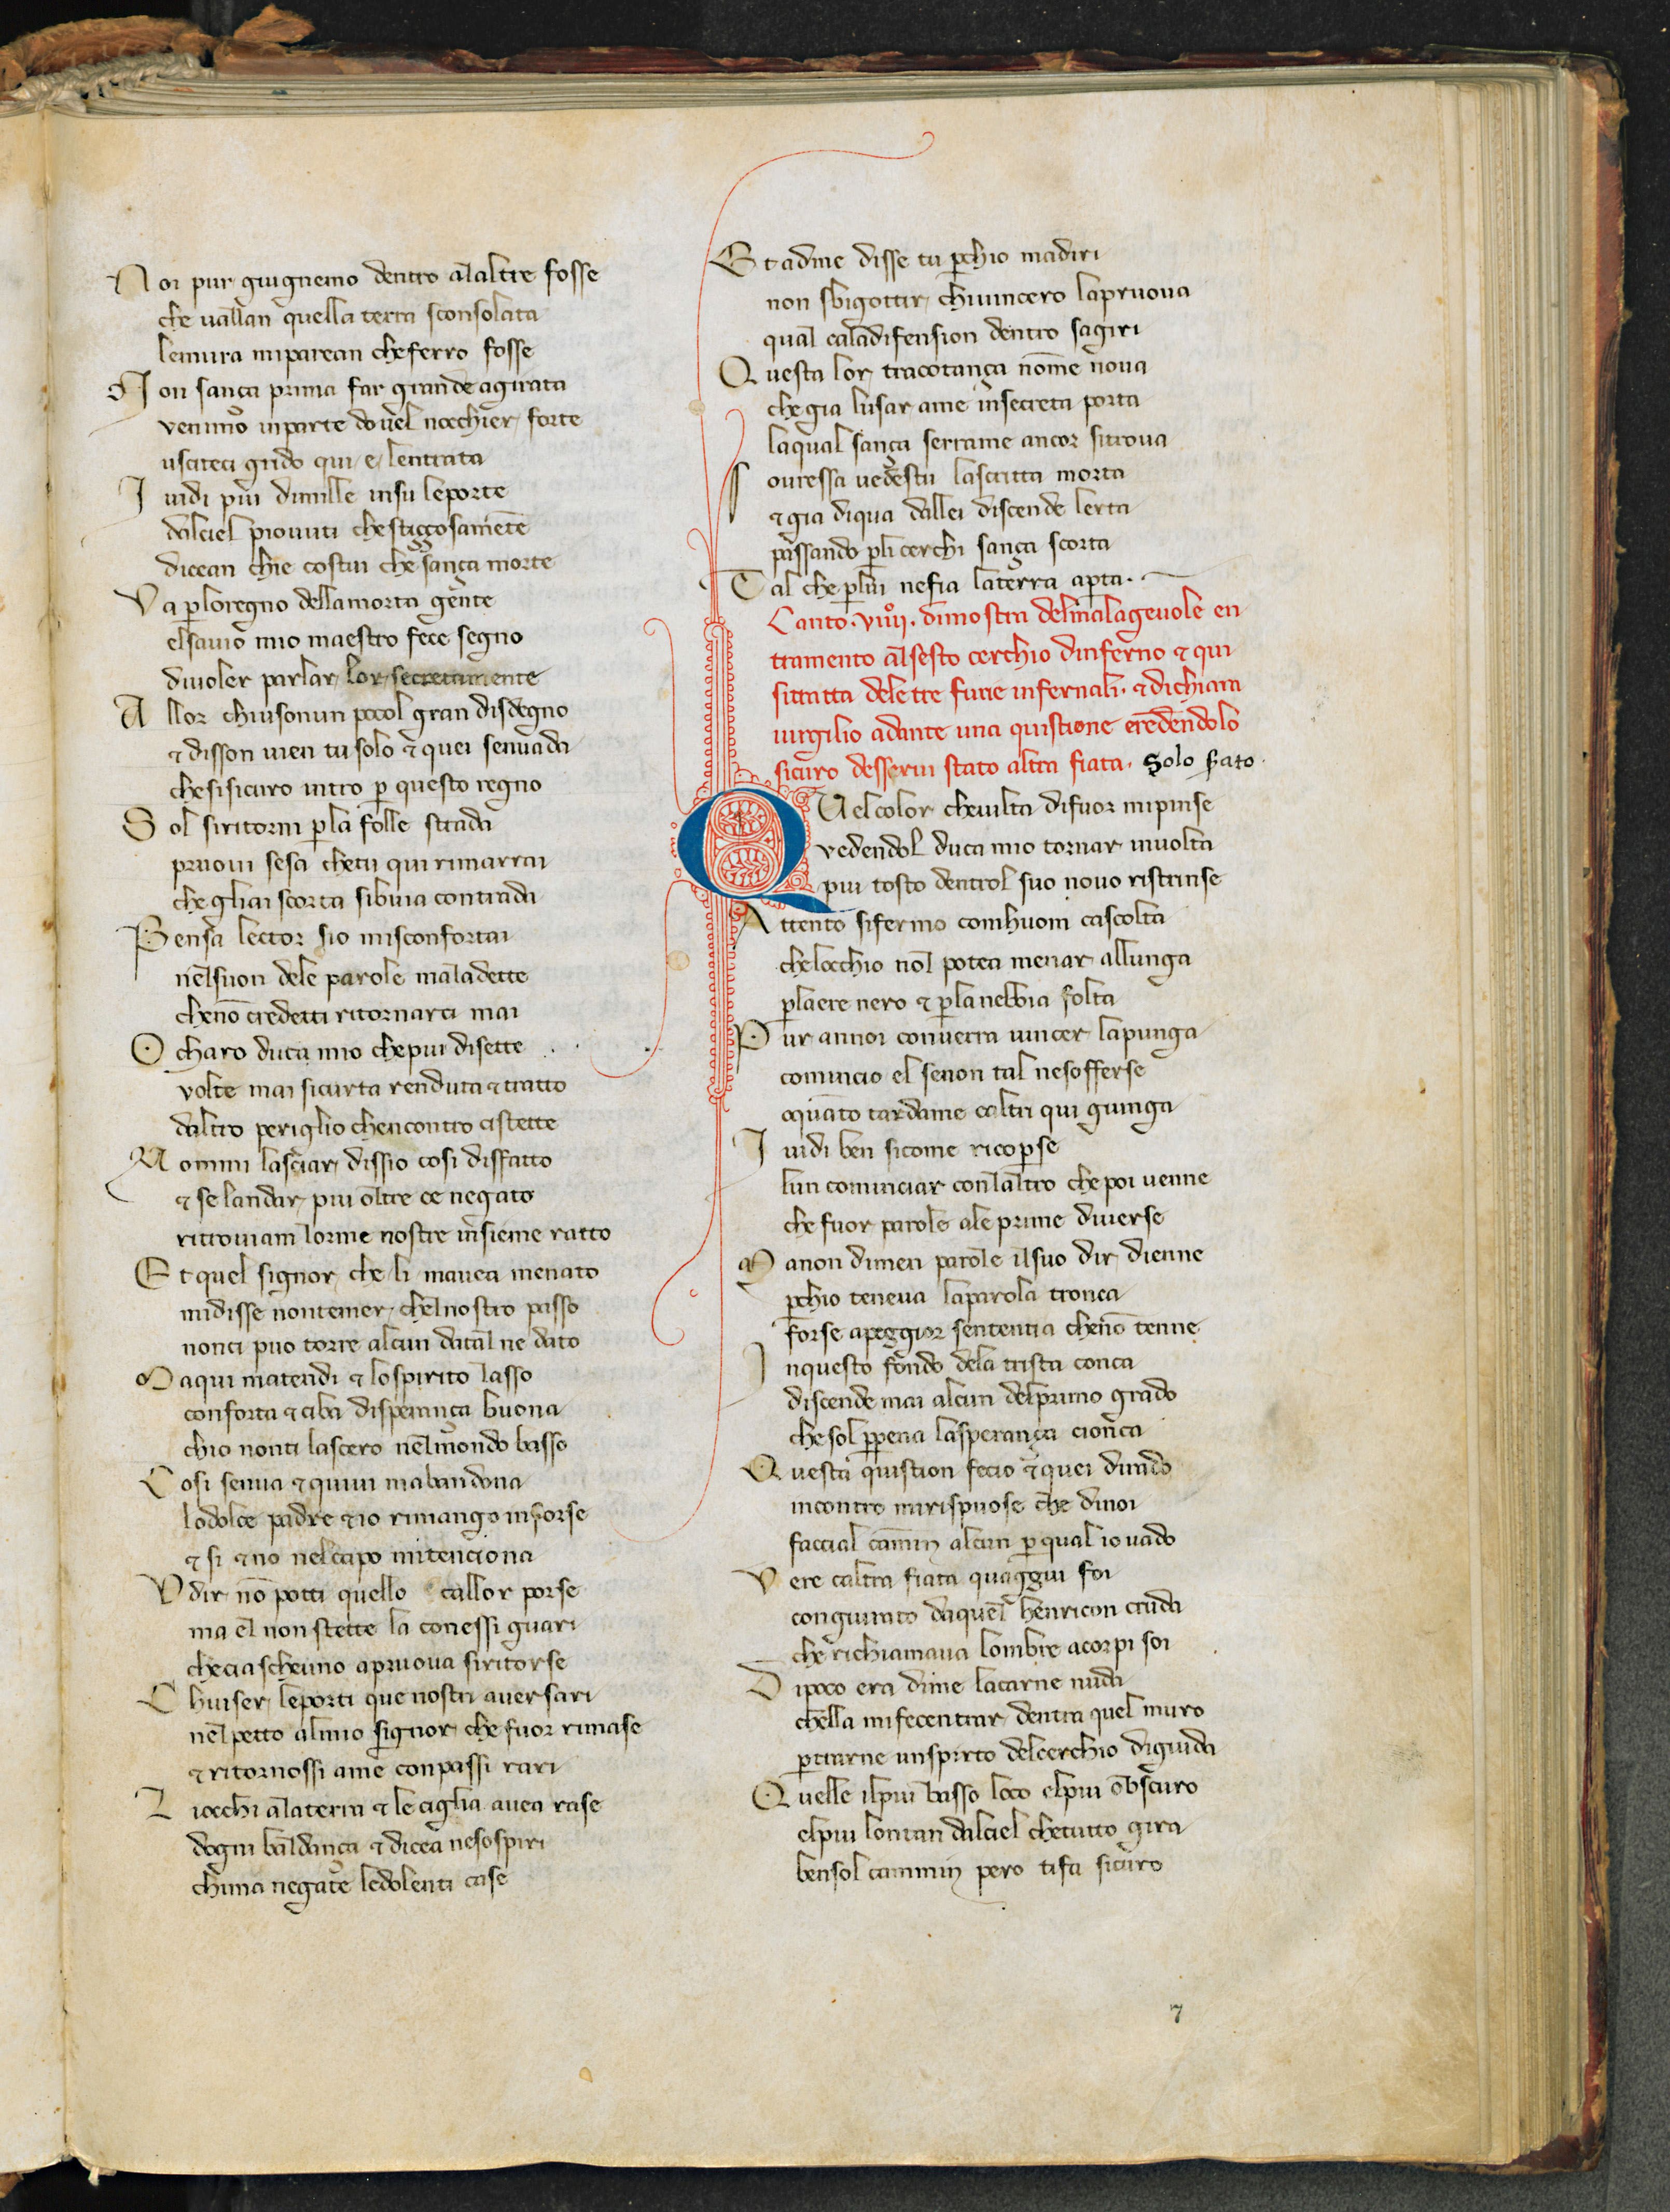 Noi pur giugnemo dentro alaltre fosse
che uallan quella terra sconsolata
lemura miparean cheferro fosse
Non sança prima far grande agirata
venimo inparte doуel nocchier forte
usciteci grido qui e lentrata
I uidi piu dimille insu leporte
dalciel piouuti chestiççosamēte
dicean chie costui che sança morte
Va ꝑ loregno dellamorta gente
elsauio mio maestro fece segno
diuoler parlar lor secretamente
Allor chiusonun pocol gran disdegno
⁊ disson uien tu solo ⁊ quei senuada
chesisicuro intro ꝑ questo regno
Sol siritorni ꝑla folle strada
pruoui sesa chetu qui rimarrai
che gliai scorta sibuia contrada
Pensa lector sio misconfortai
nelsuon dele parole maladette
chenō credetti ritornarci mai
O charo duca mio chepiu disette
volte mai sicurta renduta ⁊ tratto
daltro periglio chencontro cistette
Nommi lasciar dissio cosi disfatto
⁊ se landar piu oltre ce negato
ritrouiam lorme nostre insieme ratto
Et quel signor che li mauea menato
midisse nontemer chelnostro passo
nonci puo torre alcun datal ne dato
Ma qui matendi ⁊ lospirito lasso
conforta ⁊ ciba disperança buona
chio nonti lascero nelmondo basso
Cosi senua ⁊ quiui mabandona
lodolce padre ⁊ io rimango inforse
⁊ si ⁊ no nelcapo mitenciona
Vdir nō poti quello callor porse
ma el non stette la conessi guari
checiascheuno apruoua siritorse
Chiuser leporti que nostri auersari
nel petto almio signor che fuor rimase
⁊ ritornossi ame conpassi rari
Liocchi alaterra ⁊ le ciglia auea rase
dogni baldança ⁊ dicea nesospiri
chima negate ledolenti case
Et adme disse tu ꝑchio madiri
non sbigottir chiuincero lapruoua
qual caladifension dentro sagiri
Questa lor tracotança nōme noua
chegia lusar ame insecreta porta
laqual sança serrame ancor sitroua
Souressa uedestu lascritta morta
⁊ gia diqua dallei discende lerta
passando ꝑli cerchi sança scorta
Tal che ꝑlui nefia laterra aꝑta.
Canto .viiij. dimostra delmalageuole en
tramento alsesto cerchio dinferno ⁊ qui
sitratta deletre furie infernali. ⁊ dichiara
uirgilio adante una quistione credendolo
sicuro desserui stato altra fiata. Solo fiato.
QVelcolor cheuilta difuor mipinse
vedendol duca mio tornar inuolta
piu tosto dentrol suo nouo ristrinse
Attento sifermo comhuom cascolta
chelocchio nol potea menar allunga
ꝑlaere nero ⁊ ꝑlanebbia folta
Pur annoi conuerra uincer lapunga
comincio el senon tal nesofferse
oquāto tardame caltri qui giunga
I uidi ben sicome ricoꝑse
lun cominciar conlaltro che poi uenne
che fuor parole ale prime diuerse
Ma non dimen parole ilsuo dir dienne
ꝑchio teneua laparola tronca
forse apeggior sententia chenō tenne
Inquesto fondo dela trista conca
discende mai alcun delprimo grado
chesol ꝑpena lasperança cionca
Questa quistion fecio ⁊ quei dirado
incontro mirispuose che dinoi
faccial cammin alcun ꝑ qual io uado
Vere caltra fiata quaggiu foi
congiurato daquel henricon cruda
che richiamaua lombre acorpi soi
Dipoco era dime lacarne nuda
chella mifecentrar dentra quel muro
ꝑtrarne unspirto delcerchio digiuda
Quelle ilpiu basso loco elpiu obscuro
elpiu lontan dalciel chetutto gira
bensol cammin pero tifa sicuro
7